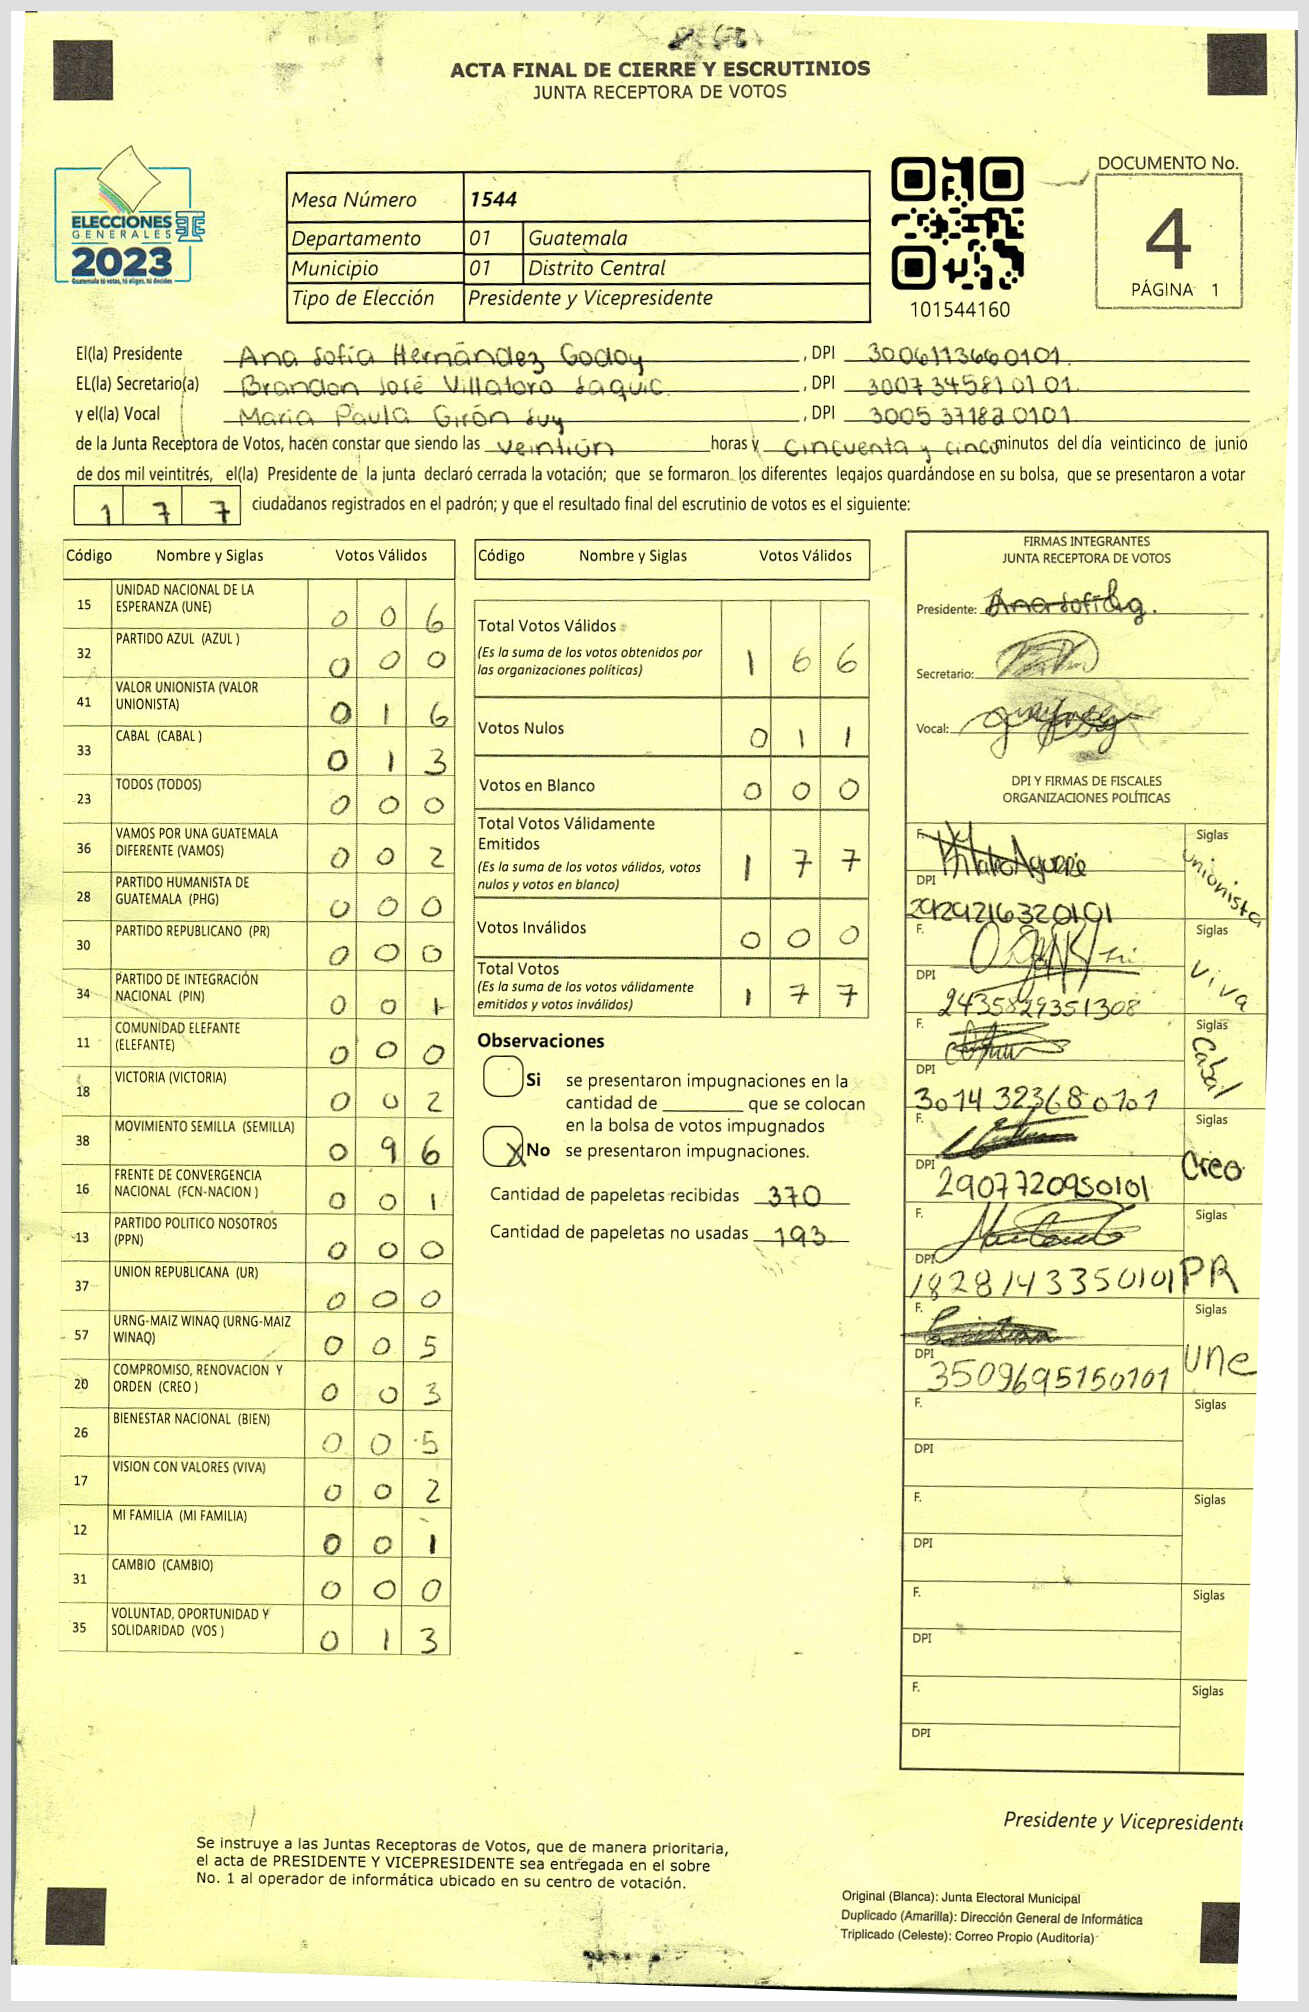 ACTA FINAL DE CIERRE Y ESCRUTINIOS
JUNTA RECEPTORA DE VOTOS
ELECCIONES
GENERALES
2023
Guatemala tú votas, tú eliges, tú decides
Mesa Número 1544
Departamento 01 Guatemala
Municipio 01 Distrito Central
Tipo de Elección Presidente y Vicepresidente
101544160
DOCUMENTO No.
4
PÁGINA 1
El(la) Presidente Ana Sofía Hernández Godoy , DPI 3006113660101
EL(la) Secretario(a) Brandon José Villatoro Saquic , DPI 3007345810101
y el(la) Vocal María Paula Girón Suy , DPI 3005371820101
de la Junta Receptora de Votos, hacen constar que siendo las veintiún horas y cincuenta y cinco minutos del día veinticinco de junio
de dos mil veintitrés, el(la) Presidente de la junta declaró cerrada la votación; que se formaron los diferentes legajos guardándose en su bolsa, que se presentaron a votar
1 7 7 ciudadanos registrados en el padrón; y que el resultado final del escrutinio de votos es el siguiente:
Código Nombre y Siglas Votos Válidos
15 UNIDAD NACIONAL DE LA
ESPERANZA (UNE) 0 0 6
32 PARTIDO AZUL (AZUL ) 0 0 0
41 VALOR UNIONISTA (VALOR
UNIONISTA) 0 1 6
33 CABAL (CABAL ) 0 1 3
23 TODOS (TODOS) 0 0 0
36 VAMOS POR UNA GUATEMALA
DIFERENTE (VAMOS) 0 0 2
28 PARTIDO HUMANISTA DE
GUATEMALA (PHG) 0 0 0
30 PARTIDO REPUBLICANO (PR) 0 0 0
34 PARTIDO DE INTEGRACIÓN
NACIONAL (PIN) 0 0 1
11 COMUNIDAD ELEFANTE
(ELEFANTE) 0 0 0
18 VICTORIA (VICTORIA) 0 0 2
38 MOVIMIENTO SEMILLA (SEMILLA) 0 9 6
16 FRENTE DE CONVERGENCIA
NACIONAL (FCN-NACION ) 0 0 1
13 PARTIDO POLITICO NOSOTROS
(PPN) 0 0 0
37 UNION REPUBLICANA (UR) 0 0 0
57 URNG-MAIZ WINAQ (URNG-MAIZ
WINAQ) 0 0 5
20 COMPROMISO, RENOVACION Y
ORDEN (CREO ) 0 0 3
26 BIENESTAR NACIONAL (BIEN) 0 0 5
17 VISION CON VALORES (VIVA) 0 0 2
12 MI FAMILIA (MI FAMILIA) 0 0 1
31 CAMBIO (CAMBIO) 0 0 0
35 VOLUNTAD, OPORTUNIDAD Y
SOLIDARIDAD (VOS ) 0 1 3
Código Nombre y Siglas Votos Válidos
Total Votos Válidos
(Es la suma de los votos obtenidos por
las organizaciones políticas) 1 6 6
Votos Nulos 0 1 1
Votos en Blanco 0 0 0
Total Votos Válidamente
Emitidos
(Es la suma de los votos válidos, votos
nulos y votos en blanco) 1 7 7
Votos Inválidos 0 0 0
Total Votos
(Es la suma de los votos válidamente
emitidos y votos inválidos) 1 7 7
Observaciones
Si se presentaron impugnaciones en la
cantidad de ________ que se colocan
en la bolsa de votos impugnados
X No se presentaron impugnaciones.
Cantidad de papeletas recibidas 370
Cantidad de papeletas no usadas 193
FIRMAS INTEGRANTES
JUNTA RECEPTORA DE VOTOS
Presidente:
Secretario:
Vocal:
DPI Y FIRMAS DE FISCALES
ORGANIZACIONES POLÍTICAS
F. Siglas Unionista
DPI
F. Siglas Viva
DPI 2435829351308
F. Siglas Cabal
DPI 3014323680101
F. Siglas Creo
DPI 2907720950101
F. Siglas PR
DPI 1828143350101
F. Siglas Une
DPI 3509695150101
F. Siglas
DPI
F. Siglas
DPI
F. Siglas
DPI
F. Siglas
DPI
Presidente y Vicepresidente
Se instruye a las Juntas Receptoras de Votos, que de manera prioritaria,
el acta de PRESIDENTE Y VICEPRESIDENTE sea entregada en el sobre
No. 1 al operador de informática ubicado en su centro de votación.
Original (Blanca): Junta Electoral Municipal
Duplicado (Amarilla): Dirección General de Informática
Triplicado (Celeste): Correo Propio (Auditoría)